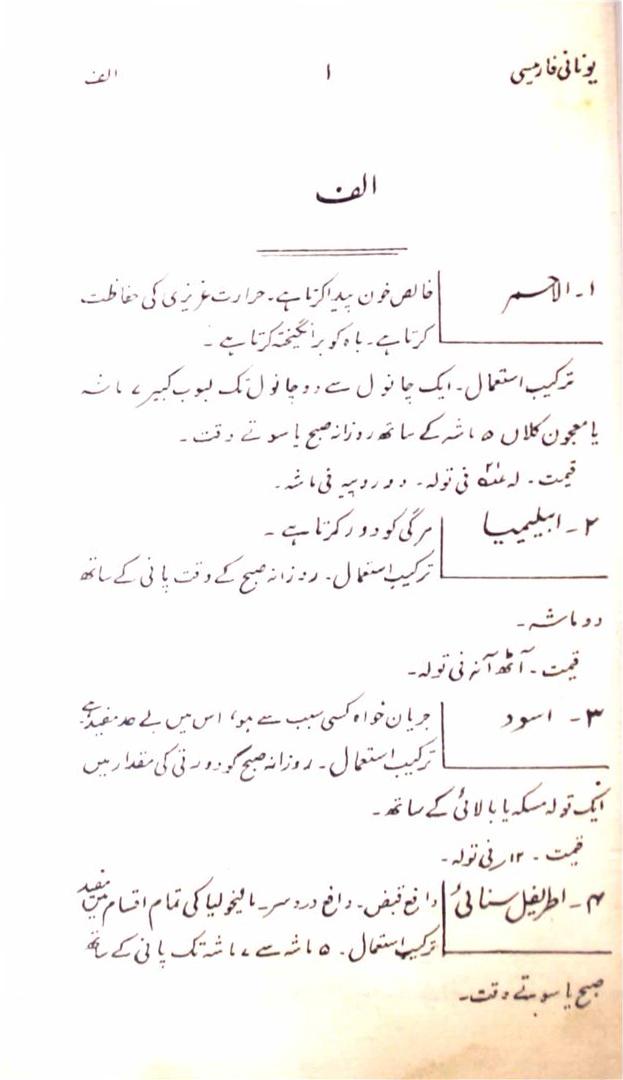 یونانی فارمیسی ۱ الف
الف
۱۔ الاحمر خالص خون پیدا کرتا ہے۔ حرارت غریزی کی حفاظت
کرتا ہے۔ باہ کو برانگیختہ کرتا ہے۔
ترکیب استعمال۔ ایک چانول سے دو چانول تک لبوب کبیر ۷ ماشہ
یا معجون کلاں ۵ ماشہ کے ساتھ روزانہ صبح یا سوتے وقت۔
قیمت۔ فی تولہ۔ دو روپیہ فی ماشہ۔
۲۔ ایپلیمیا مرگی کو دور کرتا ہے۔
ترکیب استعمال۔ روزانہ صبح کے وقت پانی کے ساتھ
دو ماشہ۔
قیمت۔ آٹھ آنہ فی تولہ۔
۳۔ اسود جریان خواہ کسی سبب سے ہو، اس میں بے حد مفید ہے۔
ترکیب استعمال۔ روزانہ صبح کو دو رتی کی مقدار میں
ایک تولہ مسکہ یا بالائی کے ساتھ۔
قیمت۔ ۱۲ر فی تولہ۔
۴۔ اطریفل سنائی دافع قبض۔ دافع درد سر۔ مالیخولیا کی تمام اقسام میں مفید
ترکیب استعمال۔ ۵ ماشہ سے ۷ ماشہ تک پانی کے ساتھ
صبح یا سوتے وقت۔